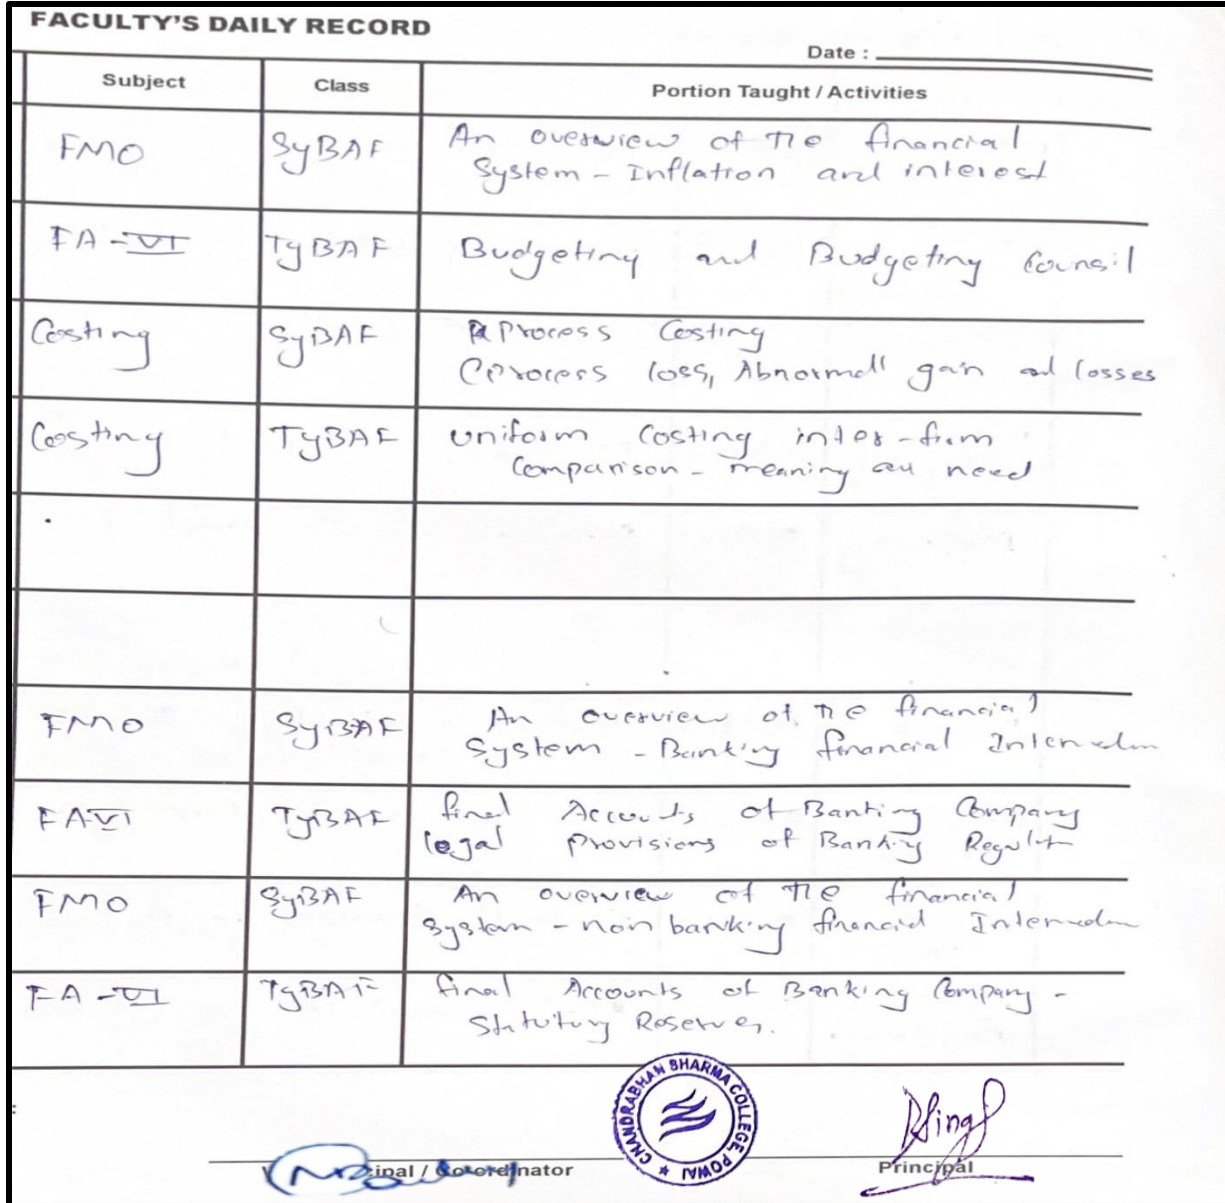 FACULTY'S DAILY RECORD
Date :
Subject Class Portion Taught / Activities
FMO SyBAF An overview of The financial
System - Inflation and interest
FA - VI TyBAF Budgeting and Budgeting Council
Costing SyBAF Process Costing
(Process loss, Abnormall gain and losses
Costing TyBAF Uniform Costing inter-firm
Comparison - meaning and need
FMO SyBAF An overview of The financial
System - Banking financial
FA VI TyBAF final Accounts of Banking Company
legal Provisions of Banking
FMO SyBAF An overview of The financial
System - non banking financial
FA - VI TyBAF final Accounts of Banking Company -
Statutory Reserves.
CHANDRABHAN SHARMA COLLEGE, POWAI
ipal / Co-ordinator
Principal